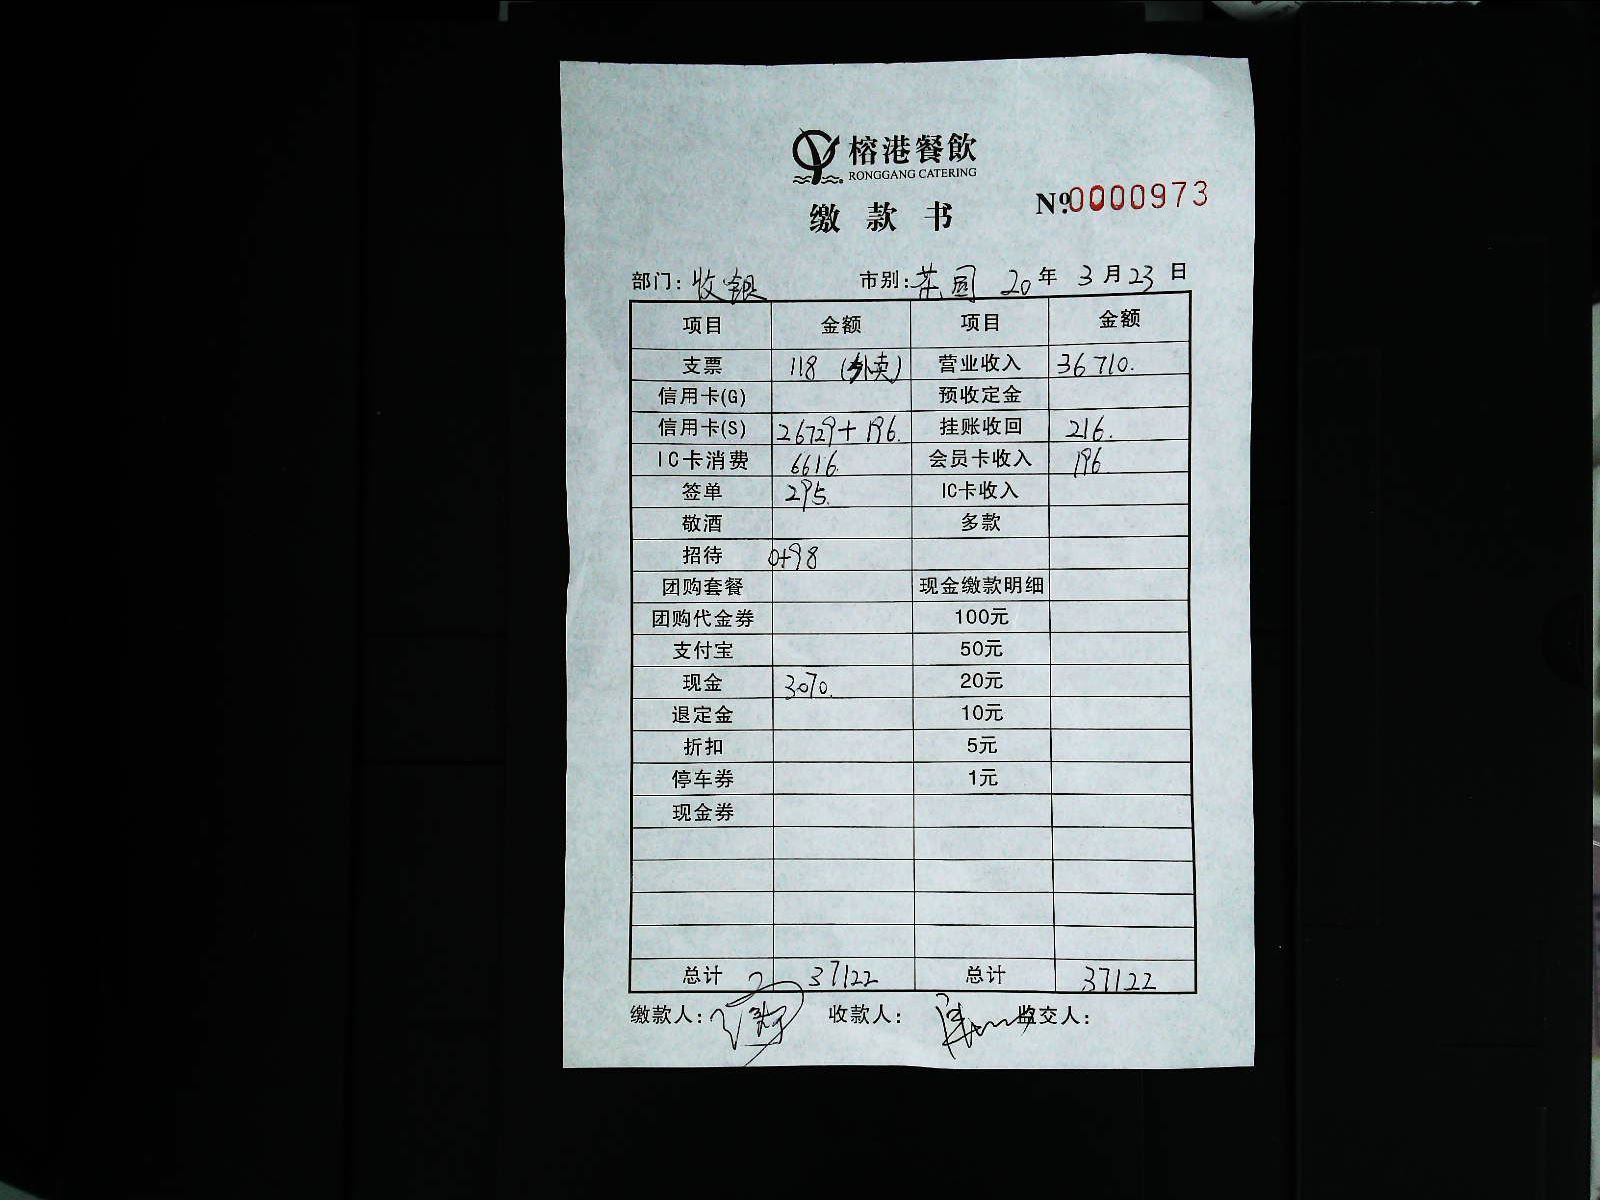 榕港餐飲
RONGGANG CATERING
缴款书
Nº:0000973
部门:收银 市别:菜园 20年3月23日
项目 金额 项目 金额
支票 118 (外卖) 营业收入 36710.
信用卡(G) 预收定金
信用卡(S) 26729+196. 挂账收回 216.
IC卡消费 6616. 会员卡收入 196
签单 295. IC卡收入
敬酒 多款
招待 0+98
团购套餐 现金缴款明细
团购代金券 100元
支付宝 50元
现金 3070. 20元
退定金 10元
折扣 5元
停车券 1元
现金券
总计 37122 总计 37122
缴款人: 收款人: 监交人: